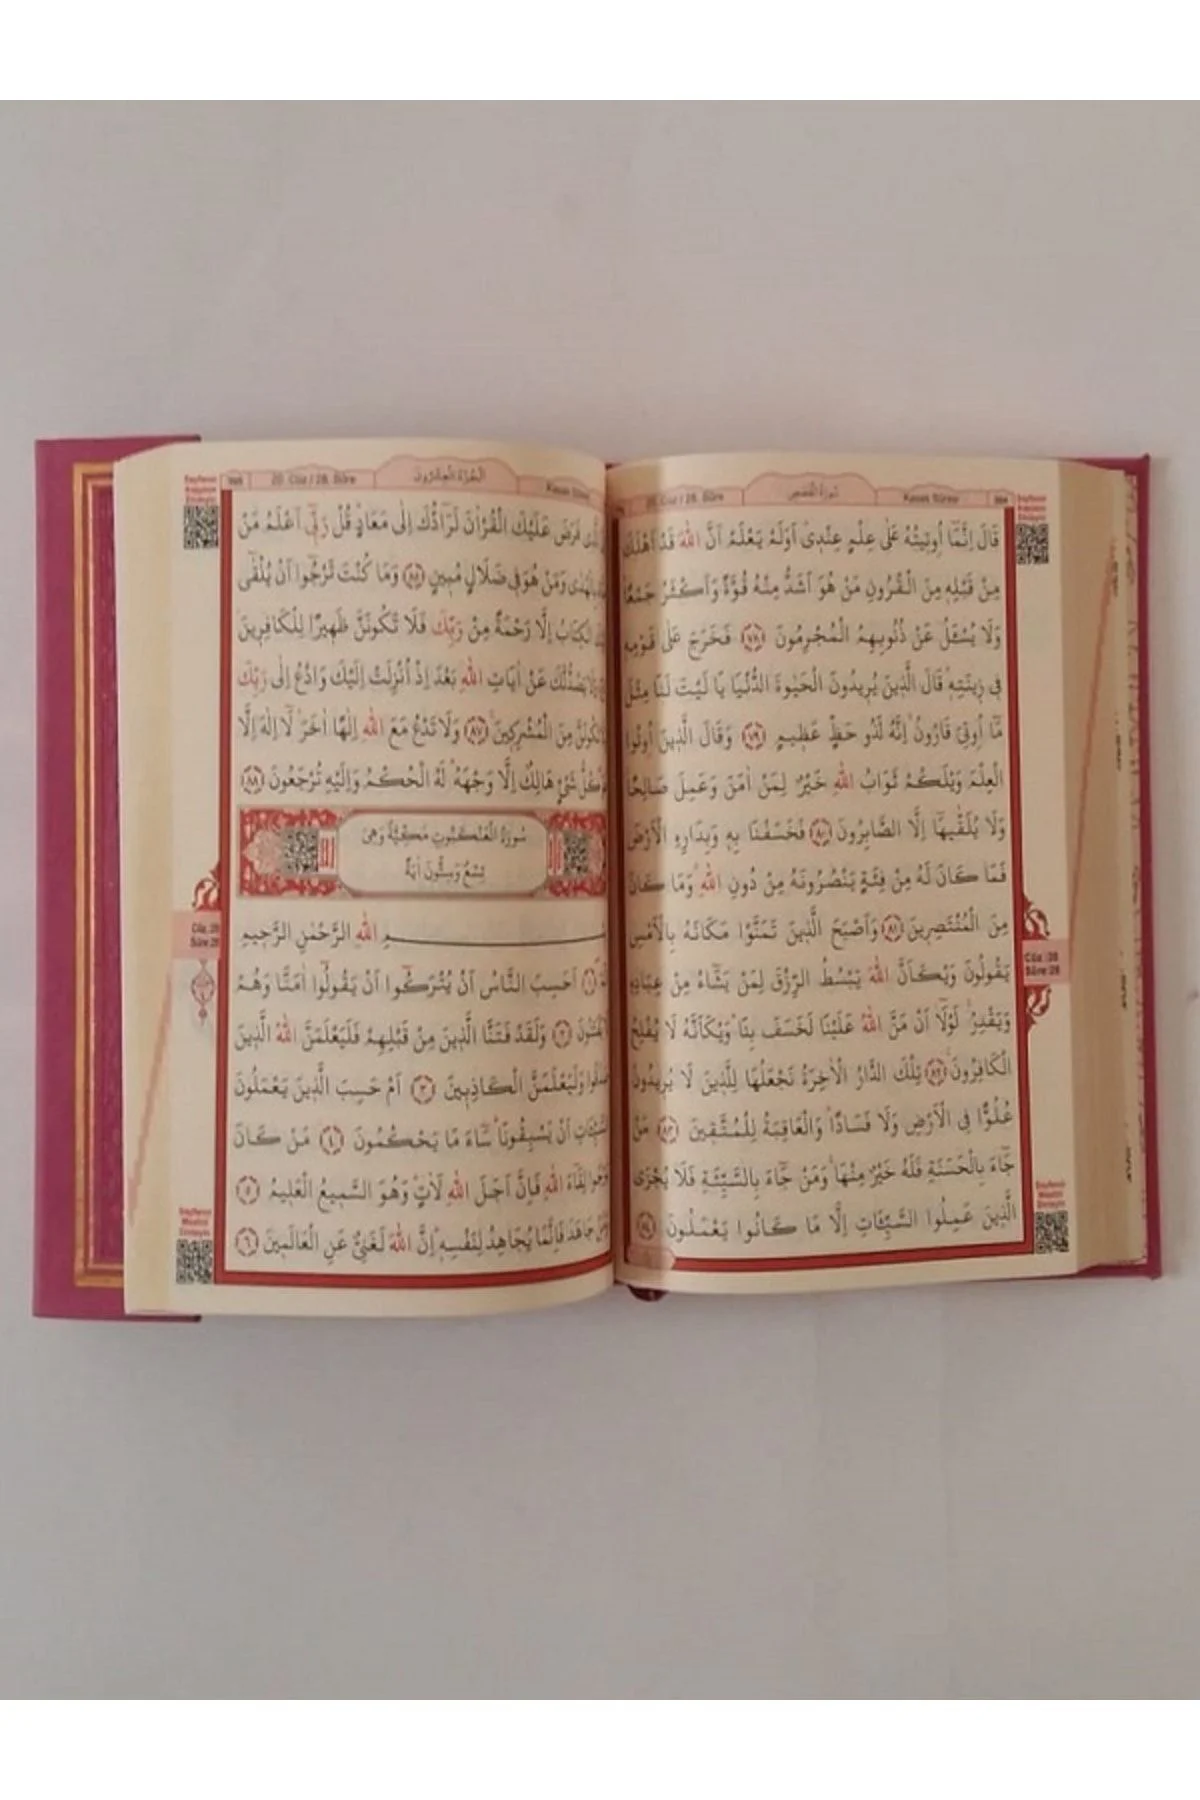 Kasas Sûresi
سُورَةُ الْقَصَصِ
20. Cüz / 28. Sûre
قَالَ اِنَّمَٓا اُو۫تٖيتُهُ عَلٰى عِلْمٍ عِنْدٖى اَوَلَمْ يَعْلَمْ اَنَّ اللّٰهَ قَدْ اَهْلَكَ
مِنْ قَبْلِهٖ مِنَ الْقُرُونِ مَنْ هُوَ اَشَدُّ مِنْهُ قُوَّةً وَاَكْثَرُ جَمْعًا
وَلَا يُسْـَٔلُ عَنْ ذُنُوبِهِمُ الْمُجْرِمُونَ ﴿٧٨﴾ فَخَرَجَ عَلٰى قَوْمِهٖ
فٖى زٖينَتِهٖ قَالَ الَّذٖينَ يُرٖيدُونَ الْحَيٰوةَ الدُّنْيَا يَا لَيْتَ لَنَا مِثْلَ
مَٓا اُو۫تِىَ قَارُونُ اِنَّهُ لَذُو حَظٍّ عَظٖيمٍ ﴿٧٩﴾ وَقَالَ الَّذٖينَ اُو۫تُوا
الْعِلْمَ وَيْلَكُمْ ثَوَابُ اللّٰهِ خَيْرٌ لِمَنْ اٰمَنَ وَعَمِلَ صَالِحًا
وَلَا يُلَقّٰيهَٓا اِلَّا الصَّابِرُونَ ﴿٨٠﴾ فَخَسَفْنَا بِهٖ وَبِدَارِهِ الْاَرْضَ
فَمَا كَانَ لَهُ مِنْ فِئَةٍ يَنْصُرُونَهُ مِنْ دُونِ اللّٰهِ وَمَا كَانَ
مِنَ الْمُنْتَصِرٖينَ ﴿٨١﴾ وَاَصْبَحَ الَّذٖينَ تَمَنَّوْا مَكَانَهُ بِالْاَمْسِ
يَقُولُونَ وَيْكَاَنَّ اللّٰهَ يَبْسُطُ الرِّزْقَ لِمَنْ يَشَٓاءُ مِنْ عِبَادِهٖ
وَيَقْدِرُ لَوْلَٓا اَنْ مَنَّ اللّٰهُ عَلَيْنَا لَخَسَفَ بِنَا وَيْكَاَنَّهُ لَا يُفْلِحُ
الْكَافِرُونَ ﴿٨٢﴾ تِلْكَ الدَّارُ الْاٰخِرَةُ نَجْعَلُهَا لِلَّذٖينَ لَا يُرٖيدُونَ
عُلُوًّا فِى الْاَرْضِ وَلَا فَسَادًا وَالْعَاقِبَةُ لِلْمُتَّقٖينَ ﴿٨٣﴾ مَنْ
جَٓاءَ بِالْحَسَنَةِ فَلَهُ خَيْرٌ مِنْهَا وَمَنْ جَٓاءَ بِالسَّيِّئَةِ فَلَا يُجْزَى
الَّذٖينَ عَمِلُوا السَّيِّـَٔاتِ اِلَّا مَا كَانُوا يَعْمَلُونَ ﴿٨٤﴾
Cüz :20
Sûre:28
Kasas Sûresi
اَلْجُزْءُ الْعِشْرُونَ
20. Cüz / 28. Sûre
395
فَرَضَ عَلَيْكَ الْقُرْاٰنَ لَرَٓادُّكَ اِلٰى مَعَادٍ قُلْ رَبّٖٓى اَعْلَمُ مَنْ
بِالْهُدٰى وَمَنْ هُوَ فٖى ضَلَالٍ مُبٖينٍ ﴿٨٥﴾ وَمَا كُنْتَ تَرْجُٓوا اَنْ يُلْقٰٓى
الْكِتَابُ اِلَّا رَحْمَةً مِنْ رَبِّكَ فَلَا تَكُونَنَّ ظَهٖيرًا لِلْكَافِرٖينَ
يَصُدُّنَّكَ عَنْ اٰيَاتِ اللّٰهِ بَعْدَ اِذْ اُنْزِلَتْ اِلَيْكَ وَادْعُ اِلٰى رَبِّكَ
تَكُونَنَّ مِنَ الْمُشْرِكٖينَ ﴿٨٧﴾ وَلَا تَدْعُ مَعَ اللّٰهِ اِلٰهًا اٰخَرَ لَٓا اِلٰهَ اِلَّا
كُلُّ شَىْءٍ هَالِكٌ اِلَّا وَجْهَهُ لَهُ الْحُكْمُ وَاِلَيْهِ تُرْجَعُونَ ﴿٨٨﴾
سُورَةُ الْعَنْكَبُوتِ مَكِّيَّةٌ وَهِىَ
تِسْعٌ وَسِتُّونَ اٰيَةً
اللّٰهِ الرَّحْمٰنِ الرَّحٖيمِ
﴿١﴾ اَحَسِبَ النَّاسُ اَنْ يُتْرَكُٓوا اَنْ يَقُولُٓوا اٰمَنَّا وَهُمْ
يُفْتَنُونَ ﴿٢﴾ وَلَقَدْ فَتَنَّا الَّذٖينَ مِنْ قَبْلِهِمْ فَلَيَعْلَمَنَّ اللّٰهُ الَّذٖينَ
صَدَقُوا وَلَيَعْلَمَنَّ الْكَاذِبٖينَ ﴿٣﴾ اَمْ حَسِبَ الَّذٖينَ يَعْمَلُونَ
السَّيِّـَٔاتِ اَنْ يَسْبِقُونَا سَٓاءَ مَا يَحْكُمُونَ ﴿٤﴾ مَنْ كَانَ
يَرْجُوا لِقَٓاءَ اللّٰهِ فَاِنَّ اَجَلَ اللّٰهِ لَاٰتٍ وَهُوَ السَّمٖيعُ الْعَلٖيمُ ﴿٥﴾
جَاهَدَ فَاِنَّمَا يُجَاهِدُ لِنَفْسِهٖ اِنَّ اللّٰهَ لَغَنِىٌّ عَنِ الْعَالَمٖينَ ﴿٦﴾
Cüz :20
Sûre:28